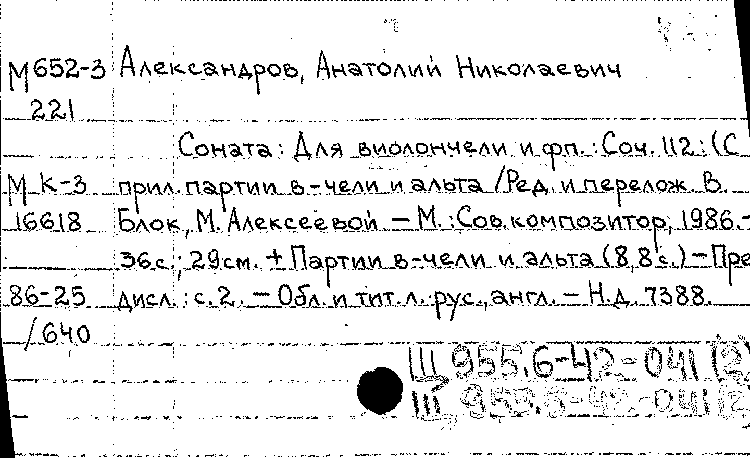 М 652-3 Александров, Анатолий Николаевич
221
Соната: Для виолончели и фп.: Соч. 112: (С
М К-3 прил. партии в-чели и альта / Ред. и перелож. В.
16618 Блок, М. Алексеевой – М.: Сов. композитор, 1986.-
36с.; 29см. + Партии в-чели и альта (8,8с.) – Пре
86-25 дисл.: с. 2. – Обл. и тит. л. рус., англ. – Н.д. 7388.
/640
Щ 955.6-42-041 (2)
Щ 955.6-42-041 (2